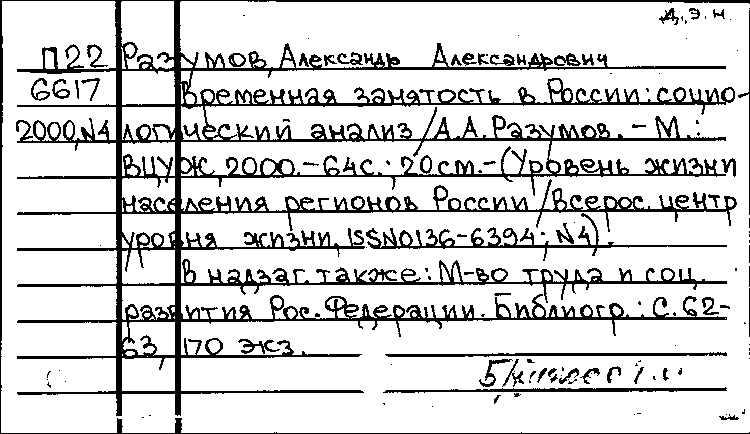 д.э.н
П22 Разумов, Александр Александрович
6617 Временная занятость в России: социо-
2000,N4 логический анализ / А.А. Разумов. - М.:
ВЦУЖ, 2000. - 64с.; 20см. - (Уровень жизни
населения регионов России / Всерос. центр
уровня жизни, ISSN0136-6394; N4).
В надзаг. также: М-во труда и соц.
развития Рос. Федерации. Библиогр.: С. 62-
63, 170 экз.